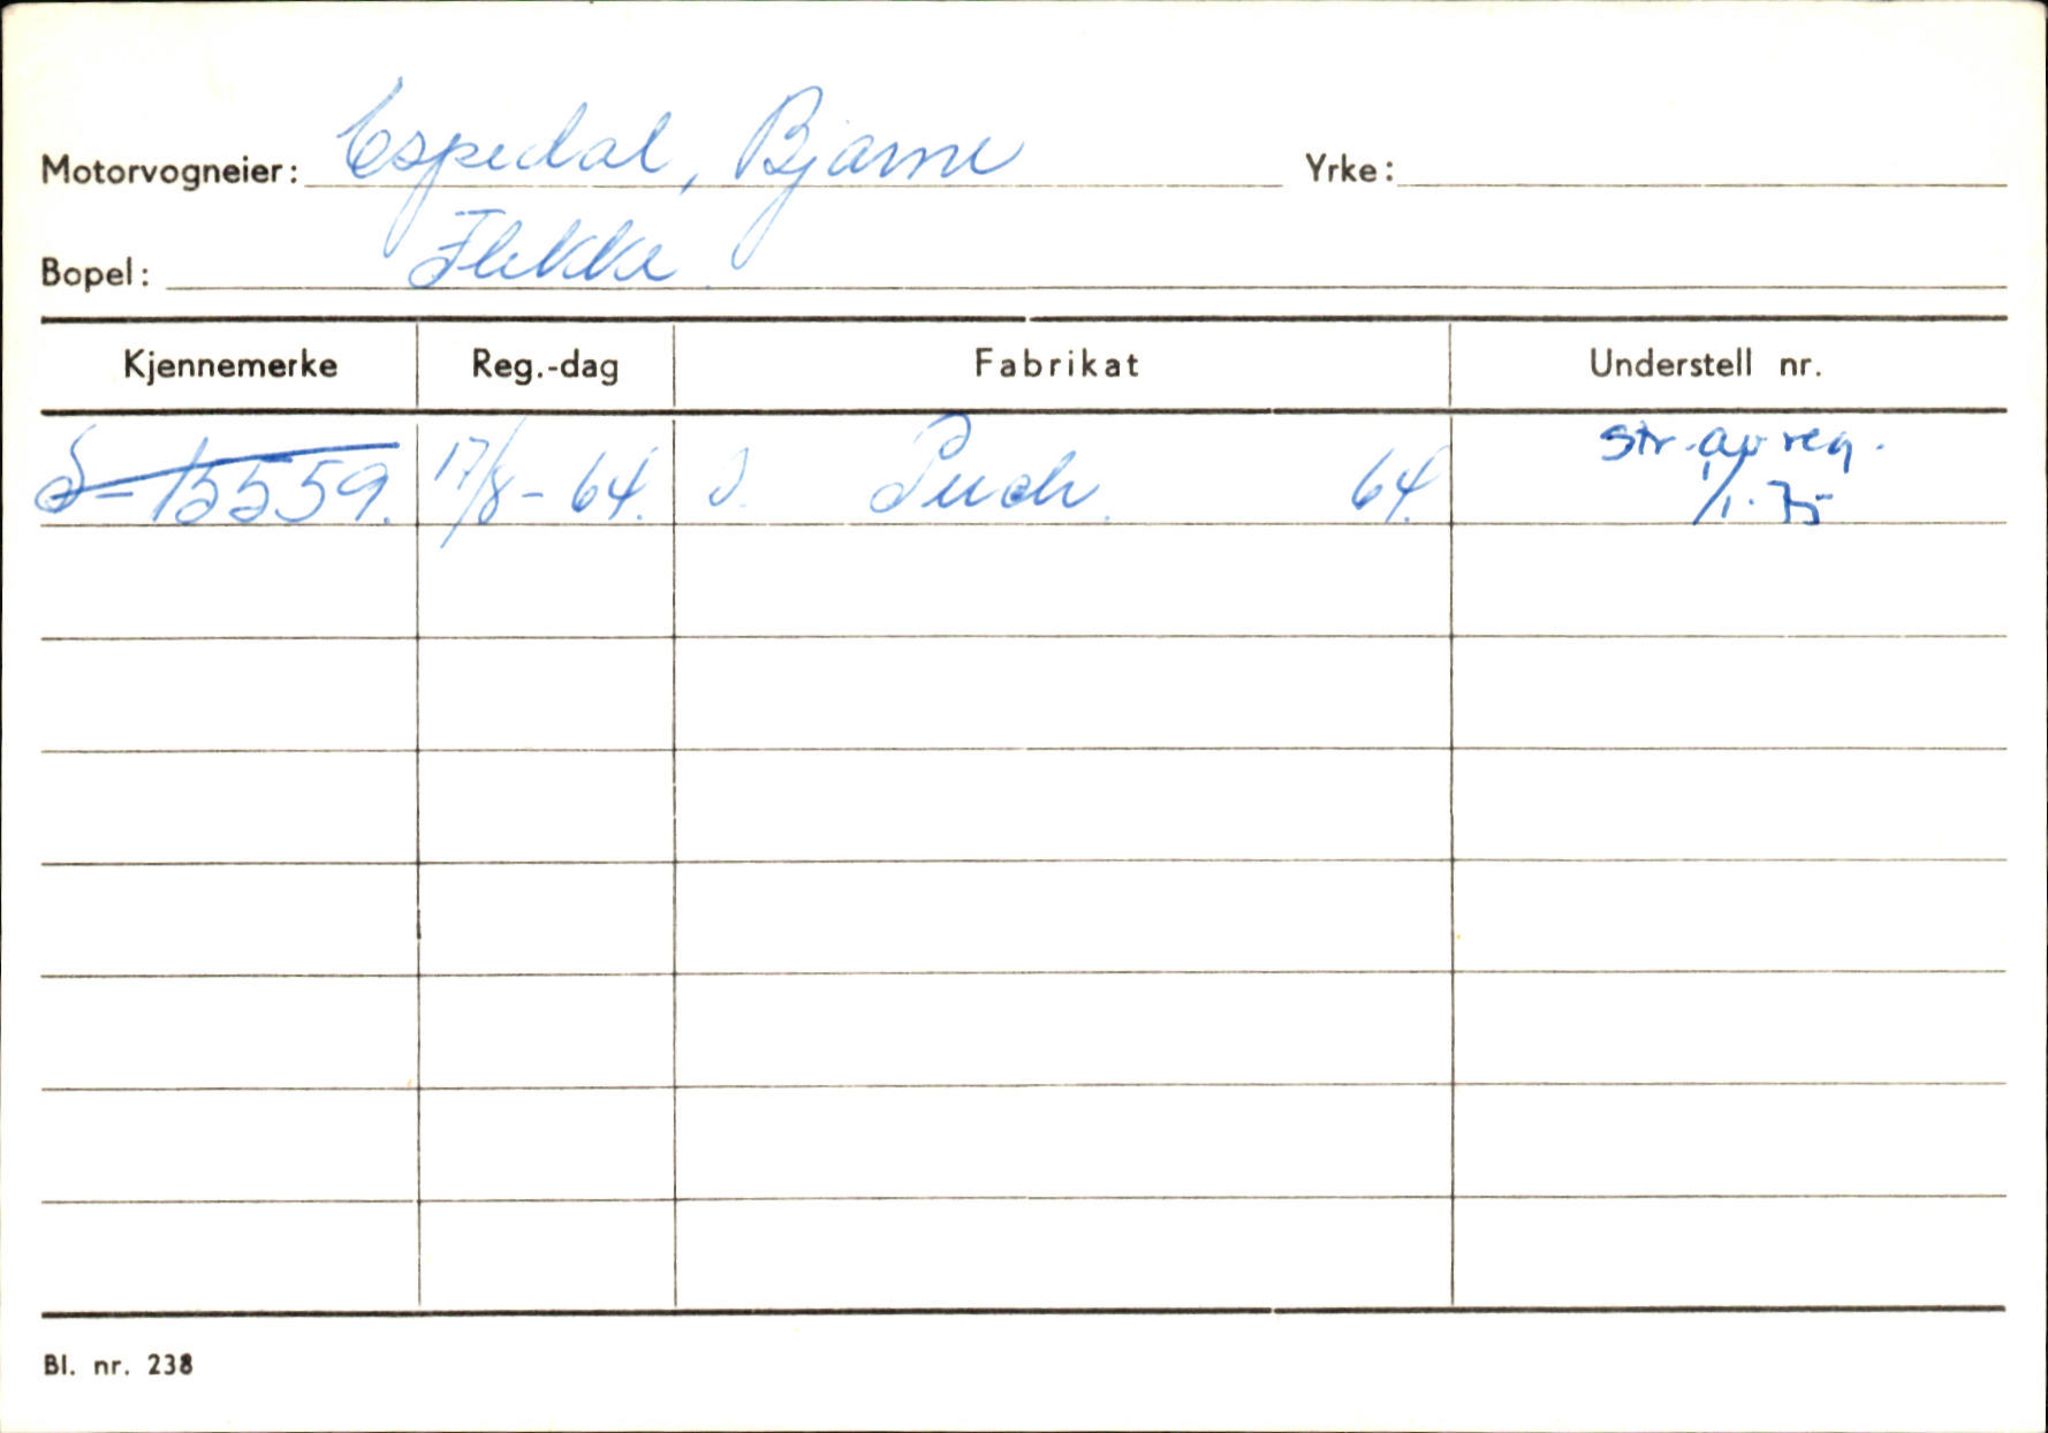 Motorvogneier: Espedal, Bjarne Yrke:
Bopel: Flekke.
Kjennemerke Reg.-dag Fabrikat Understell nr.
S-15559. 17/8-64. Puch. 64. str. av reg. 1/1.75
Bl. nr. 238